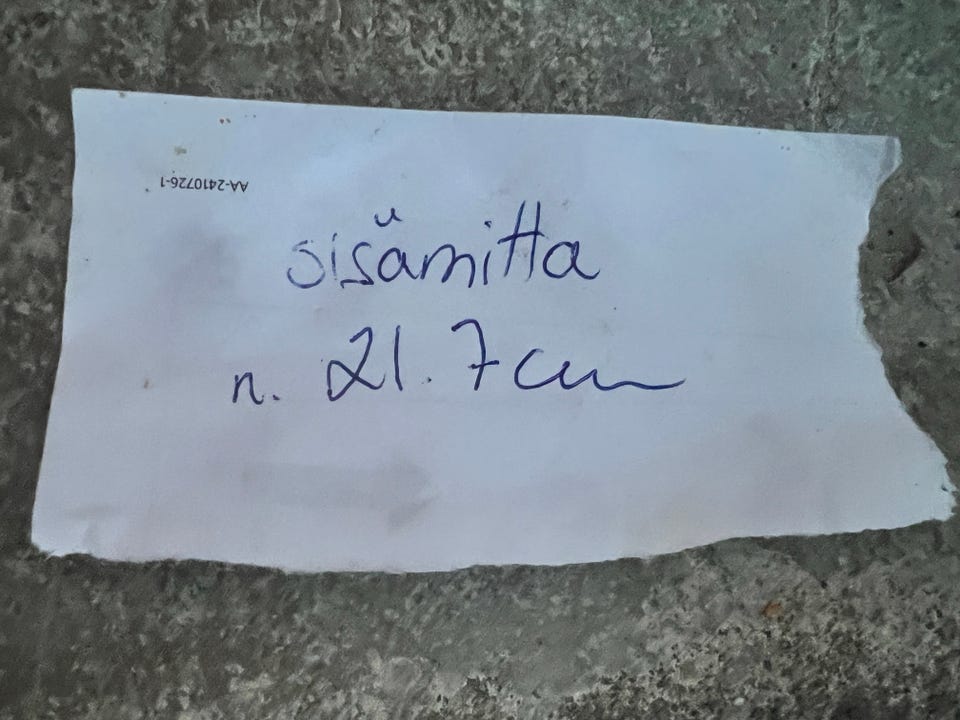 AA-2410726-1
sisämitta
n. 21.7cm